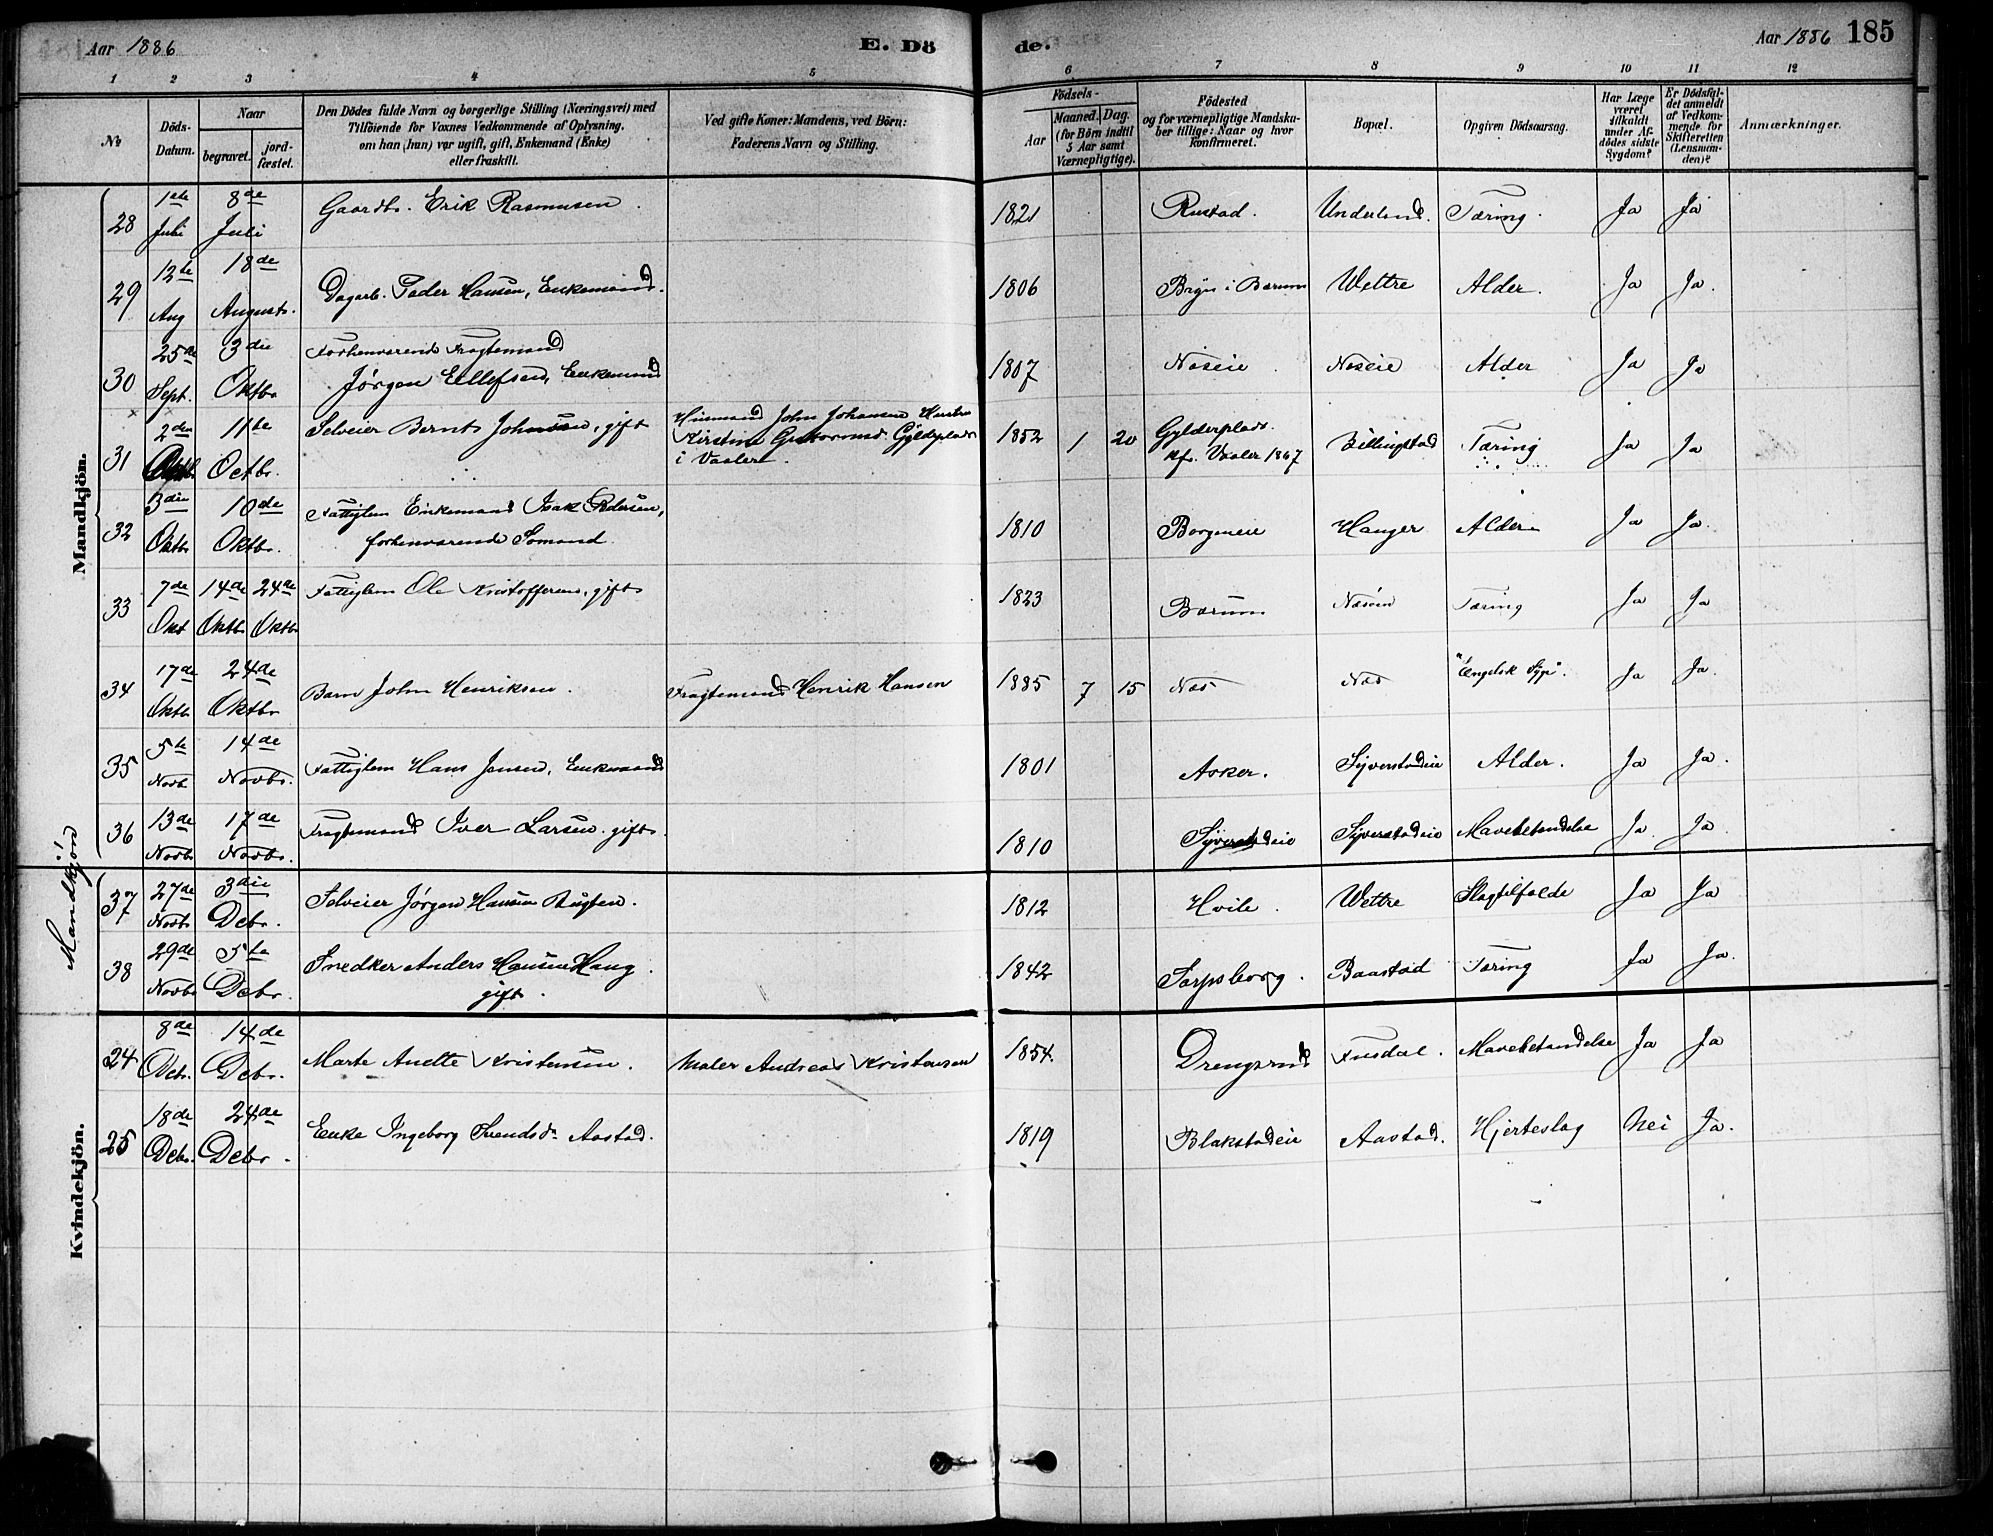 Aar 1886
E. Dö
de.
Aar 1886 185
1 2 3 4 5 6 7 8 9 10 11 12
No
Döds-Datum.
Naar
begravet.
jord-fæstet.
Den Dödes fulde Navn og borgerlige Stilling (Næringsvei) med
Tilföiende for Voxnes Vedkommende af Oplysning,
om han (hun) var ugift, gift, Enkemand (Enke)
eller fraskilt.
Ved gifte Koner: Mandens, ved Börn:
Faderens Navn og Stilling.
Födsels-
Aar
Maaned. Dag.
(for Börn indtil
5 Aar samt
Værnepligtige).
Födested
og for værnepligtige Mandska-
ber tillige: Naar og hvor
konfirmeret.
Bopæl.
Opgiven Dödsaarsag.
Har Læge
været
tilkaldt
under Af-
dödes sidste
Sygdom?
Er Dödsfal-
det anmeldt
af Vedkom-
mende for
Skifteretten
(Lensman-
den)?
Anmærkninger.
Mandkjön.
28 1ste Juli 8de Juli Gaardbr. Erik Rasmusen 1821 Rustad. Underland. Tæring. Ja Ja
29 12te Aug 18de Augustr. Dagarb. Peder Hansen, Enkemand. 1806 Bærum Wettre Alder. Ja Ja.
30 25de Sept. 3die Oktbr Forhenværende Fragtemand
Jørgen Ellefsen, Enkemand 1807 Næseie Neseie Alder Ja Ja
31 2den Oktb. 11te Octbr. Selveier Bernt Johnsen, gift Huusmand John Johansen Hustru
Kirstine Gylderplads
i Vaaler. 1852 1 20 Gylderplads.
kfr. Vaaler 1867 Billingstad Tæring Ja Ja
32 3die Oktbr 10de Oktbr. Fattiglem Enkemand Isak Pedersen,
forhenværende Sømand. 1810 Borgeneie Hanger Alder Ja Ja.
33 7de Okt 14de Oktbr 24de Oktbr Fattiglem Ole Kristoffersen, gift 1823 Bærum Tæring Ja Ja
34 17de Oktb. 24de Oktbr Barn John Henriksen. Fragtemand Henrik Hansen 1885 7 15 Næs Næs "Engelsk Syge". Ja Ja.
35 5te Novb 14de Novbr. Fattiglem Hans Jensen, Enkemand 1801 Asker. Syverstadeie Alder. Ja Ja.
36 13de Novbr 17de Novbr. Fragtemand Iver Larsen. gift. 1810 Syverstadeie Syverstadeie Mavebetændelse Ja. Ja.
Mandkjön
37 27de Novbr 3die Debr. Selveier Jørgen Hansen Bugten. 1812 Hvile. Wettre Slagtilfælde Ja Ja
38 29de Novbr 5te Debr. Snedker Anders Hansen Haug.
gift. 1842 Sarpsborg. Baastad Tæring Ja Ja.
Kvindekjön.
24 8de Debr. 14de Debr. Marte Anette Kristensen. Maler Andreas Kristensen 1854. Drengsrud Fusdal. Mavebetændelse Ja Ja
25 18de Debr. 24de Debr. Enke Ingeborg Svendsdr. Aastad. 1819 Blakstadeie Aastad. Hjerteslag Nei Ja.